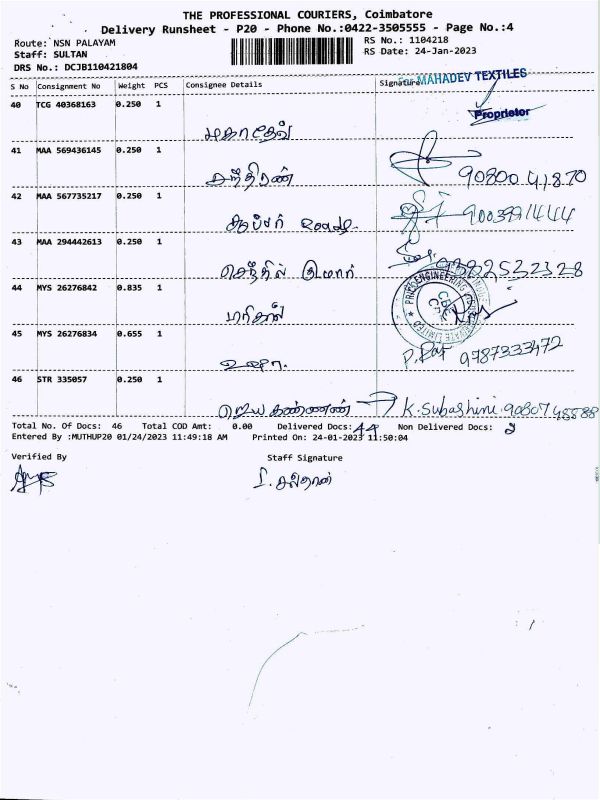 THE PROFESSIONAL COURIERS, Coimbatore
Delivery Runsheet - P20 - Phone No.:0422-3505555 - Page No.:4
Route: NSN PALAYAM
RS No.: 1104218
Staff: SULTAN
RS Date: 24-Jan-2023
DRS No.: DCJB110421804
S No Consignment No Weight PCS Consignee Details Signature
MAHADEV TEXTILES
40 TCG 40368163 0.250 1
Proprietor
மகாதேவ்
41 MAA 569436145 0.250 1
சந்திரன் 90800 41870
42 MAA 567735217 0.250 1
9003991444
43 MAA 294442613 0.250 1
செந்தில் குமார்
44 MYS 26276842 0.835 1
45 MYS 26276834 0.655 1
உஷா. 9787333472
46 STR 335057 0.250 1
ஜெய கண்ணன் K. Subashini.
Total No. Of Docs: 46 Total COD Amt: 0.00 Delivered Docs: 44 Non Delivered Docs: 2
Entered By :MUTHUP20 01/24/2023 11:49:18 AM Printed On: 24-01-2023 11:50:04
Verified By Staff Signature